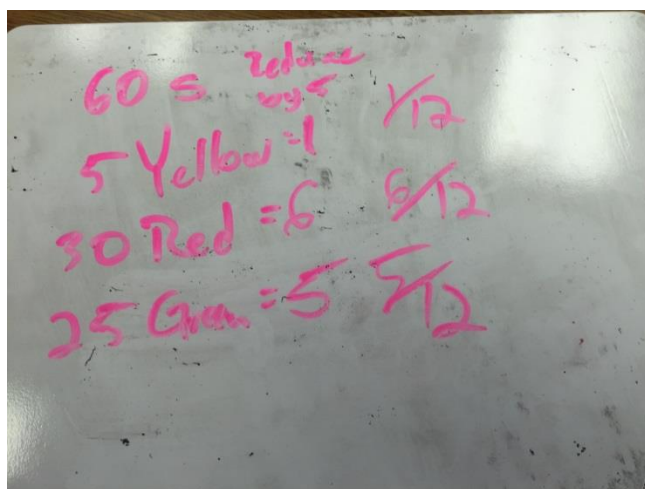 60 s reduce by 5
5 Yellow = 1 1/12
30 Red = 6 6/12
25 Green = 5 5/12